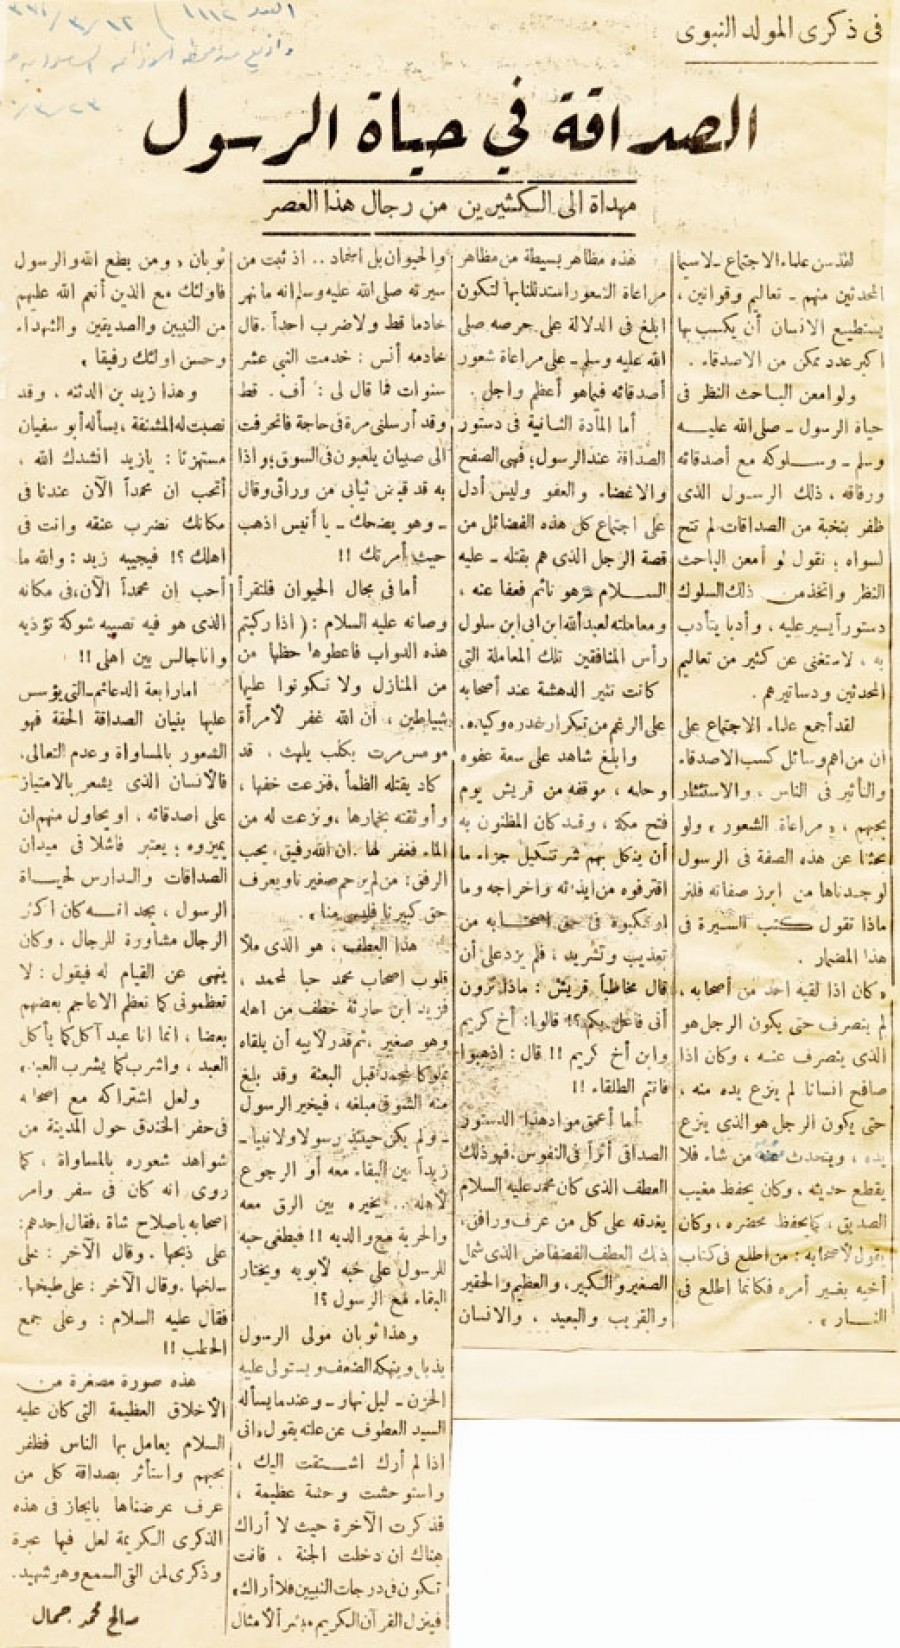 فى ذكرى المولد النبوى
العدد ١١١٢
الصداقة في حياة الرسول
مهداة الى الكثيرين من رجال هذا العصر
لقد سن علماء الاجتماع - لاسيما
المحدثين منهم - تعاليم وقوانين ،
يستطيع الانسان أن يكسب بها
اكبر عدد ممكن من الاصدقاء .
ولو امعن الباحث النظر فى
حياة الرسول - صلى الله عليه
وسلم - وسلوكه مع أصدقائه
ورفاقه ، ذلك الرسول الذى
ظفر بنخبة من الصداقات لم تتح
لسواه ؛ نقول لو أمعن الباحث
النظر واتخذ من ذلك السلوك
دستوراً يسير عليه ، وأدبا يتأدب
به ، لاستغنى عن كثير من تعاليم
المحدثين ودساتيرهم .
لقد أجمع علماء الاجتماع على
ان من اهم وسائل كسب الاصدقاء
والتأثير فى الناس ، والاستئثار
بحبهم ، « مراعاة الشعور » ولو
بحثنا عن هذه الصفة فى الرسول
لوجدناها من ابرز صفاته فلنر
ماذا تقول كتب السيرة فى
هذا المضمار .
« كان اذا لقيه احد من أصحابه ،
لم ينصرف حتى يكون الرجل هو
الذى ينصرف عنه ، وكان اذا
صافح انسانا لم ينزع يده منه ،
حتى يكون الرجل هو الذى ينزع
يده ، ويتحدث من شاء فلا
يقطع حديثه ، وكان يحفظ مغيب
الصديق ، كما يحفظ محضره ، وكان
يقول لأصحابه : من اطلع فى كتاب
أخيه بغير أمره فكأنما اطلع فى
النار » .
هذه مظاهر بسيطة من مظاهر
مراعاة الشعور استدللنا بها لتكون
ابلغ فى الدلالة على حرصه صلى
الله عليه وسلم - على مراعاة شعور
أصدقائه فيما هو أعظم واجل .
أما المادة الثانية فى دستور
الصداقة عند الرسول ؛ فهى الصفح
والاغضاء . والعفو وليس أدل
على اجتماع كل هذه الفضائل من
قصة الرجل الذى هم بقتله - عليه
السلام وهو نائم فعفا عنه ،
ومعاملته لعبد الله ابن ابى ابن سلول
رأس المنافقين تلك المعاملة التى
كانت تثير الدهشة عند أصحابه
على الرغم من تكرار غدره وكيده .
وابلغ شاهد على سعة عفوه
وحلمه ، موقفه من قريش يوم
فتح مكة ، وقد كان المظنون به
أن ينكل بهم شر تنكيل جزاء ما
اقترفوه من ايذائه واخراجه وما
ارتكبوه فى حق اصحابه من
تعذيب وتشريد ، فلم يزد على أن
قال مخاطباً قريش : ماذا ترون
أنى فاعل بكم ؟! قالوا : أخ كريم
وابن أخ كريم !! قال : اذهبوا
فانتم الطلقاء !!
أما أعمق مواد هذا الدستور
الصداقى أثراً فى النفوس . فهو ذلك
العطف الذى كان محمد عليه السلام
يغدقه على كل من عرف ورافق ،
ذلك العطف الفضفاض الذى شمل
الصغير والكبير ، والعظيم والحقير
والقريب والبعيد ، والانسان
والحيوان بل الجماد .. اذ ثبت من
سيرته صلى الله عليه وسلم انه ما نهر
خادما قط ولا ضرب احداً . قال
خادمه أنس : خدمت النبى عشر
سنوات فما قال لى : أف . قط
وقد أرسلنى مرة فى حاجة فانحرفت
الى صبيان يلعبون فى السوق ؛ واذا
به قد قبض ثيابى من ورائى وقال
- وهو يضحك - يا أنيس اذهب
حيث أمرتك !!
أما فى مجال الحيوان فلنقرأ
وصاته عليه السلام : ( اذا ركبتم
هذه الدواب فاعطوها حظها من
من المنازل ولا تكونوا عليها
شياطين ، أن الله غفر لأمرأة
مومس مرت بكلب يلهث ، قد
كاد يقتله الظمأ ، فنزعت خفها ،
وأوثقته بخمارها ، ونزعت له من
الماء فغفر لها . ان الله رفيق يحب
الرفق : من لم يرحم صغيرنا ويعرف
حق كبيرنا فليس منا » .
هذا العطف ، هو الذى ملأ
قلوب اصحاب محمد حبا لمحمد ،
فزيد ابن حارثة خطف من اهله
وهو صغير ، ثم قدر لأبيه أن يلقاه
مملوكا لمحمد قبل البعثة وقد بلغ
منه الشوق مبلغه ، فيخير الرسول
- ولم يكن حينئذ رسولا ولا نبيا -
زيداً بين البقاء معه أو الرجوع
لأهله .. يخيره بين الرق معه
والحرية مع والديه !! فيطغى حبه
للرسول على حبه لأبويه ويختار
البقاء مع الرسول ؟!
وهذا ثوبان مولى الرسول
يذبل وينهكه الضعف ويستولى عليه
الحزن - ليل نهار - وعندما يسأله
السيد العطوف عن علته يقول « انى
اذا لم أرك اشتقت اليك ،
واستوحشت وحشة عظيمة ،
فذكرت الآخرة حيث لا أراك
هناك ان دخلت الجنة ، فانت
تكون فى درجات النبيين فلا أراك »
فينزل القرآن الكريم مبشراً الأمثال
ثوبان « ومن يطع الله والرسول
فاولئك مع الذين أنعم الله عليهم
من النبيين والصديقين والشهداء
وحسن اولئك رفيقا »
وهذا زيد بن الدثنه ، وقد
نصبت له المشنقة ، يسأله أبو سفيان
مستهزئا : يا زيد انشدك الله ،
أتحب ان محمداً الآن عندنا فى
مكانك نضرب عنقه وانت فى
اهلك ؟! فيجيبه زيد : والله ما
أحب ان محمداً الآن ، فى مكانه
الذى هو فيه تصيبه شوكة تؤذيه
وانا جالس بين اهلى !!
اما رابعة الدعائم - التى يؤسس
عليها بنيان الصداقة الحقة فهو
الشعور بالمساواة وعدم التعالى .
فالأنسان الذى يشعر بالامتياز
على اصدقائه ، او يحاول منهم ان
يميزوه ؛ يعتبر فاشلا فى ميدان
الصداقات والدارس لحياة
الرسول ، يجد انه كان اكثر
الرجال مشاورة للرجال . وكان
ينهى عن القيام له فيقول : لا
تعظمونى كما تعظم الاعاجم بعضهم
بعضا ، انما انا عبد آكل كما يأكل
العبد ، واشرب كما يشرب العبد »
ولعل اشتراكه مع اصحابه
فى حفر الخندق حول المدينة من
شواهد شعوره بالمساواة ، كما
روى انه كان فى سفر وامر
اصحابه باصلاح شاة ، فقال احدهم :
على ذبحها . وقال الآخر : على
سلخها . وقال الآخر : على طبخها .
فقال عليه السلام : وعلى جمع
الحطب !!
هذه صورة مصغرة من
الأخلاق العظيمة التى كان عليه
السلام يعامل بها الناس فظفر
بحبهم واستأثر بصداقة كل من
عرف عرضناها بايجاز فى هذه
الذكرى الكريمة لعل فيها عبرة
وذكرى لمن القى السمع وهو شهيد .
صالح محمد جمال